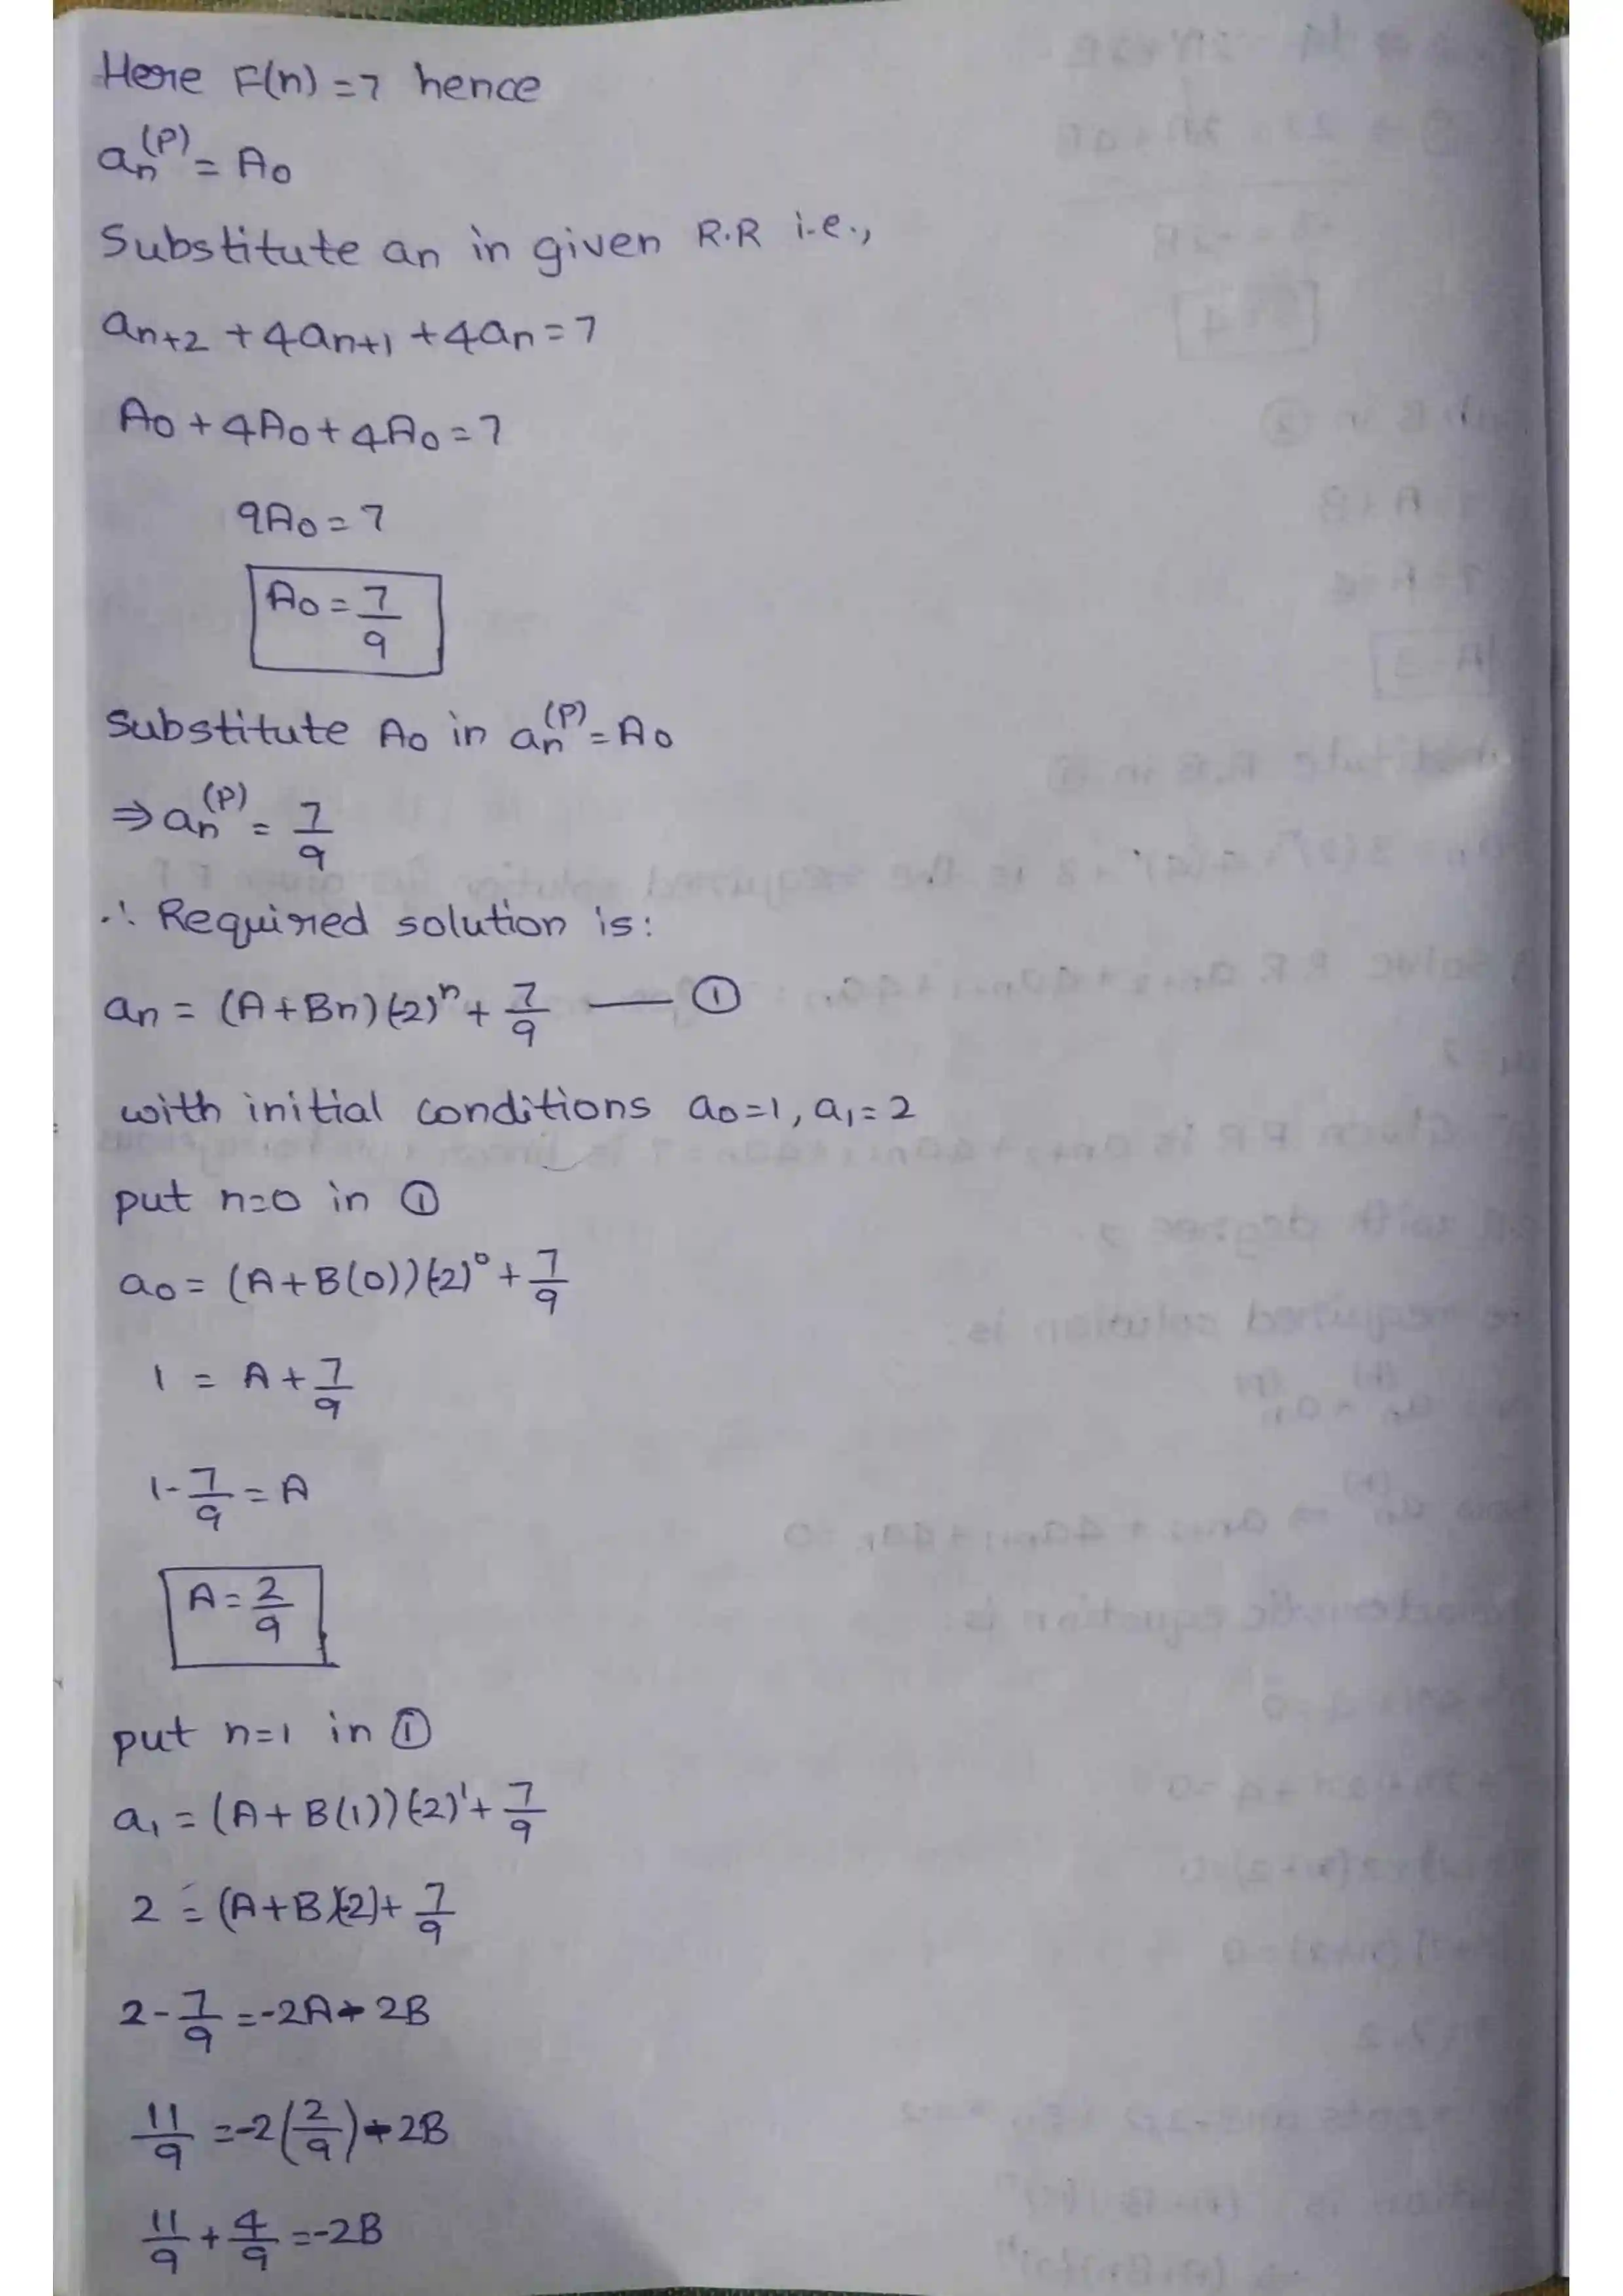 Here F(n)=7 hence
an^(P) = A0
Substitute an in given R.R i.e.,
an+2 + 4an+1 + 4an = 7
A0 + 4A0 + 4A0 = 7
9A0 = 7
A0 = 7/9
Substitute A0 in an^(P) = A0
⇒ an^(P) = 7/9
∴ Required solution is:
an = (A+Bn)(-2)^n + 7/9 — ①
with initial conditions a0=1, a1=2
put n=0 in ①
a0 = (A+B(0))(-2)^0 + 7/9
1 = A + 7/9
1 - 7/9 = A
A = 2/9
put n=1 in ①
a1 = (A+B(1))(-2)^1 + 7/9
2 = (A+B)(-2) + 7/9
2 - 7/9 = -2A - 2B
11/9 = -2(2/9) - 2B
11/9 + 4/9 = -2B